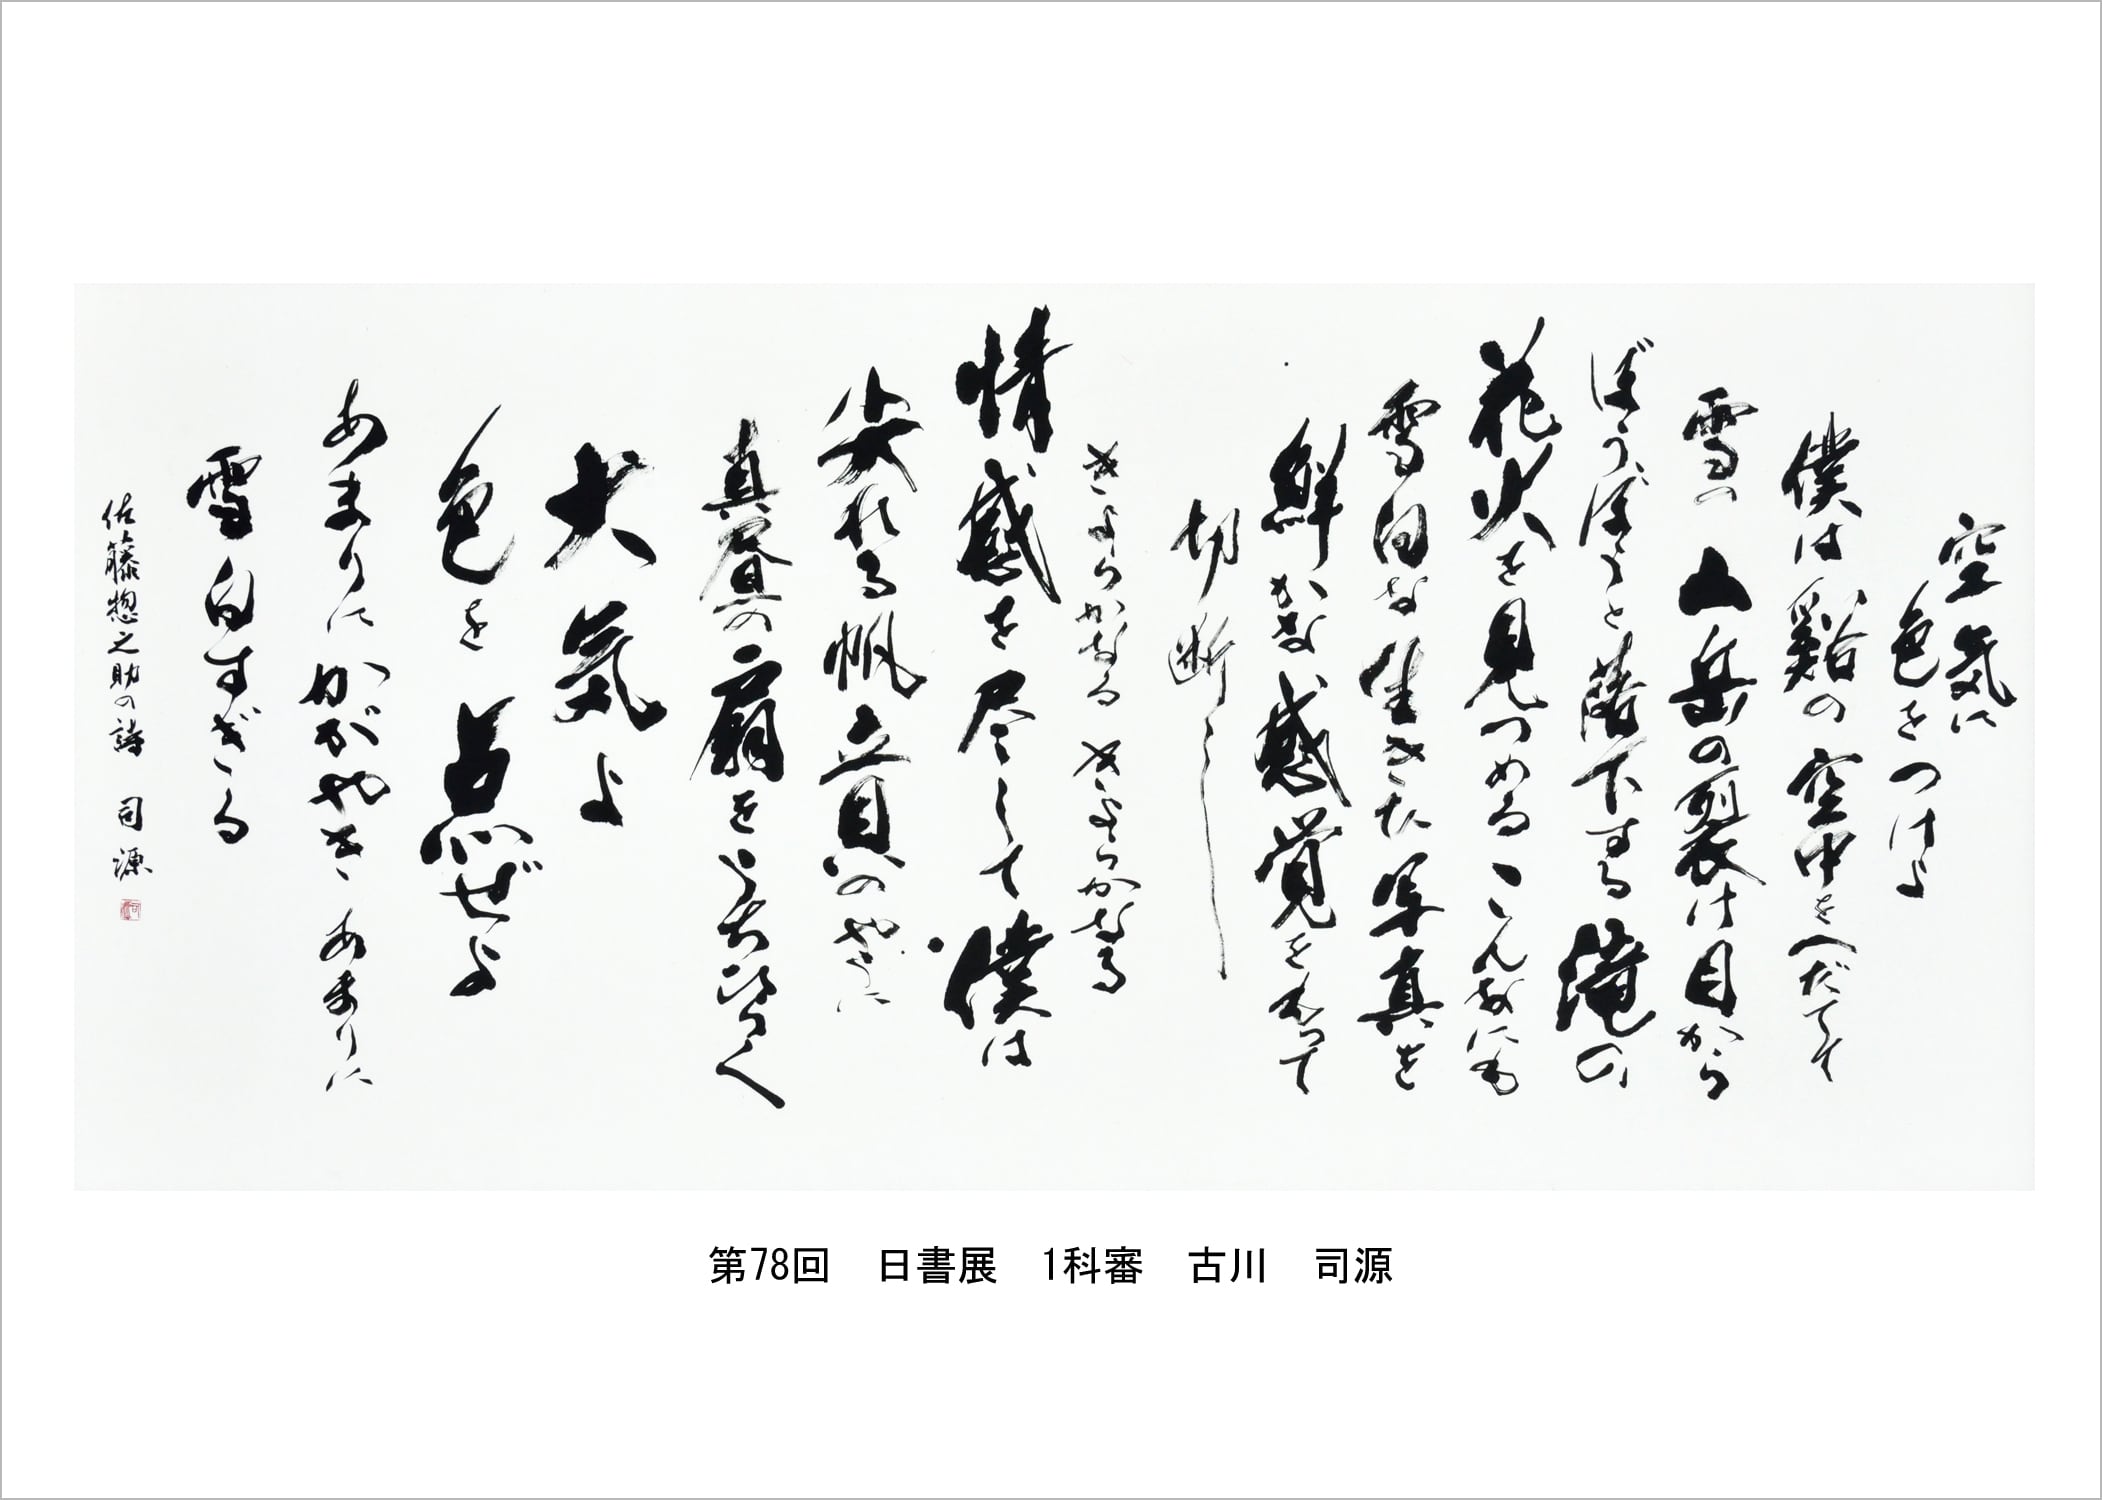 空気に
色をつけよ
僕は谿の空中をへだてて
雪の山岳の裂け目から
ぼうぼうと落下する滝の
花火を見つめる こんなにも
雪白な生きた写真を
鮮かな感覚をもって
切断し
きよらかなる きよらかなる
情感を尽して 僕は
尖れる帆立貝のやうに
真昼の扇をうちひらく
大気よ
色を点ぜよ
あまりにかがやき あまりに
雪白すぎる
佐藤惣之助の詩 司源
第78回 日書展 1科審 古川 司源